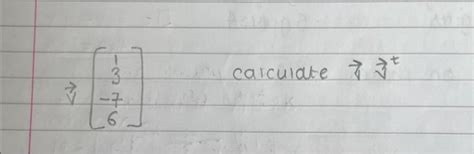 v⃗ [1
3
-7
6] calculate v⃗ v⃗ᵗ